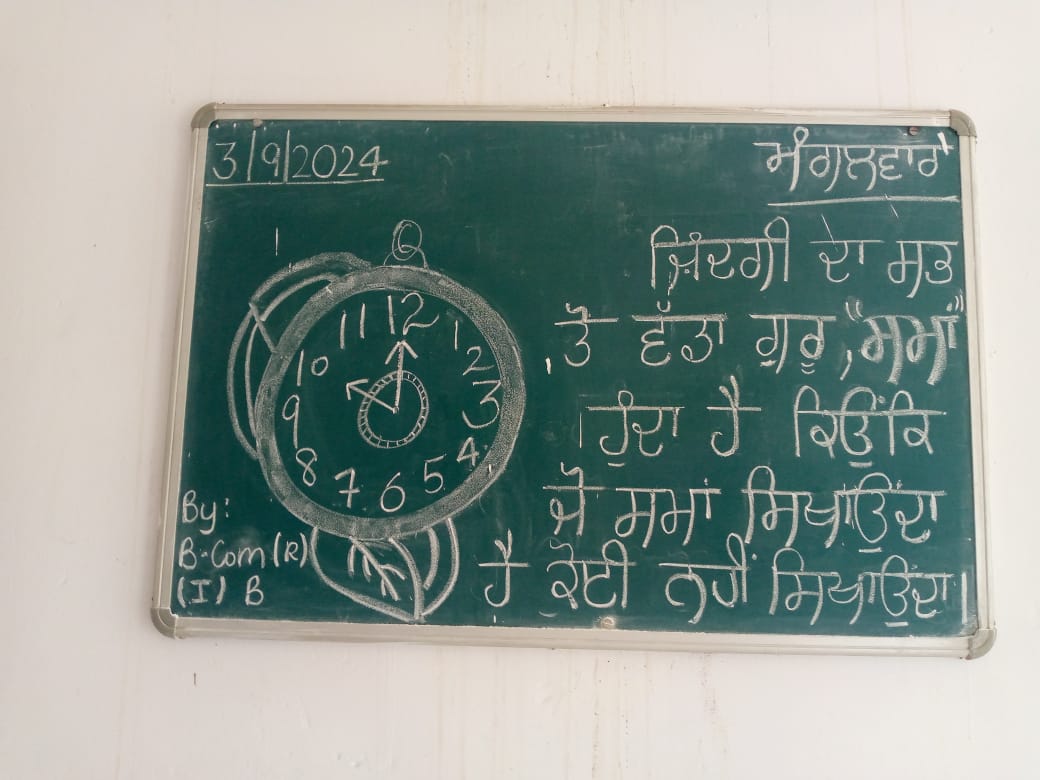 3/9/2024
ਮੰਗਲਵਾਰ
ਜ਼ਿੰਦਗੀ ਦਾ ਸਭ
ਤੋ ਵੱਡਾ ਗੁਰੂ, "ਸਮਾਂ"
ਹੁੰਦਾ ਹੈ ਕਿਉਂਕਿ
ਜੋ ਸਮਾਂ ਸਿਖਾਉਂਦਾ
ਹੈ ਕੋਈ ਨਹੀਂ ਸਿਖਾਉਂਦਾ।
12
1
2
3
4
5
6
7
8
9
10
11
By:
B.Com (R)
(I) B